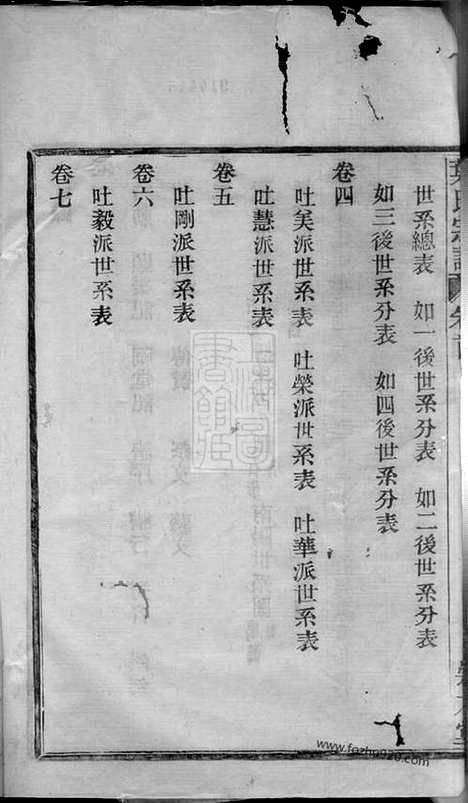 世系總表　如一後世系分表　如二後世系分表
如三後世系分表　如四後世系分表
卷四
吐美派世系表　吐榮派世系表　吐華派世系表
吐慧派世系表
卷五
吐剛派世系表
卷六
吐毅派世系表
卷七
www.fozhu920.com